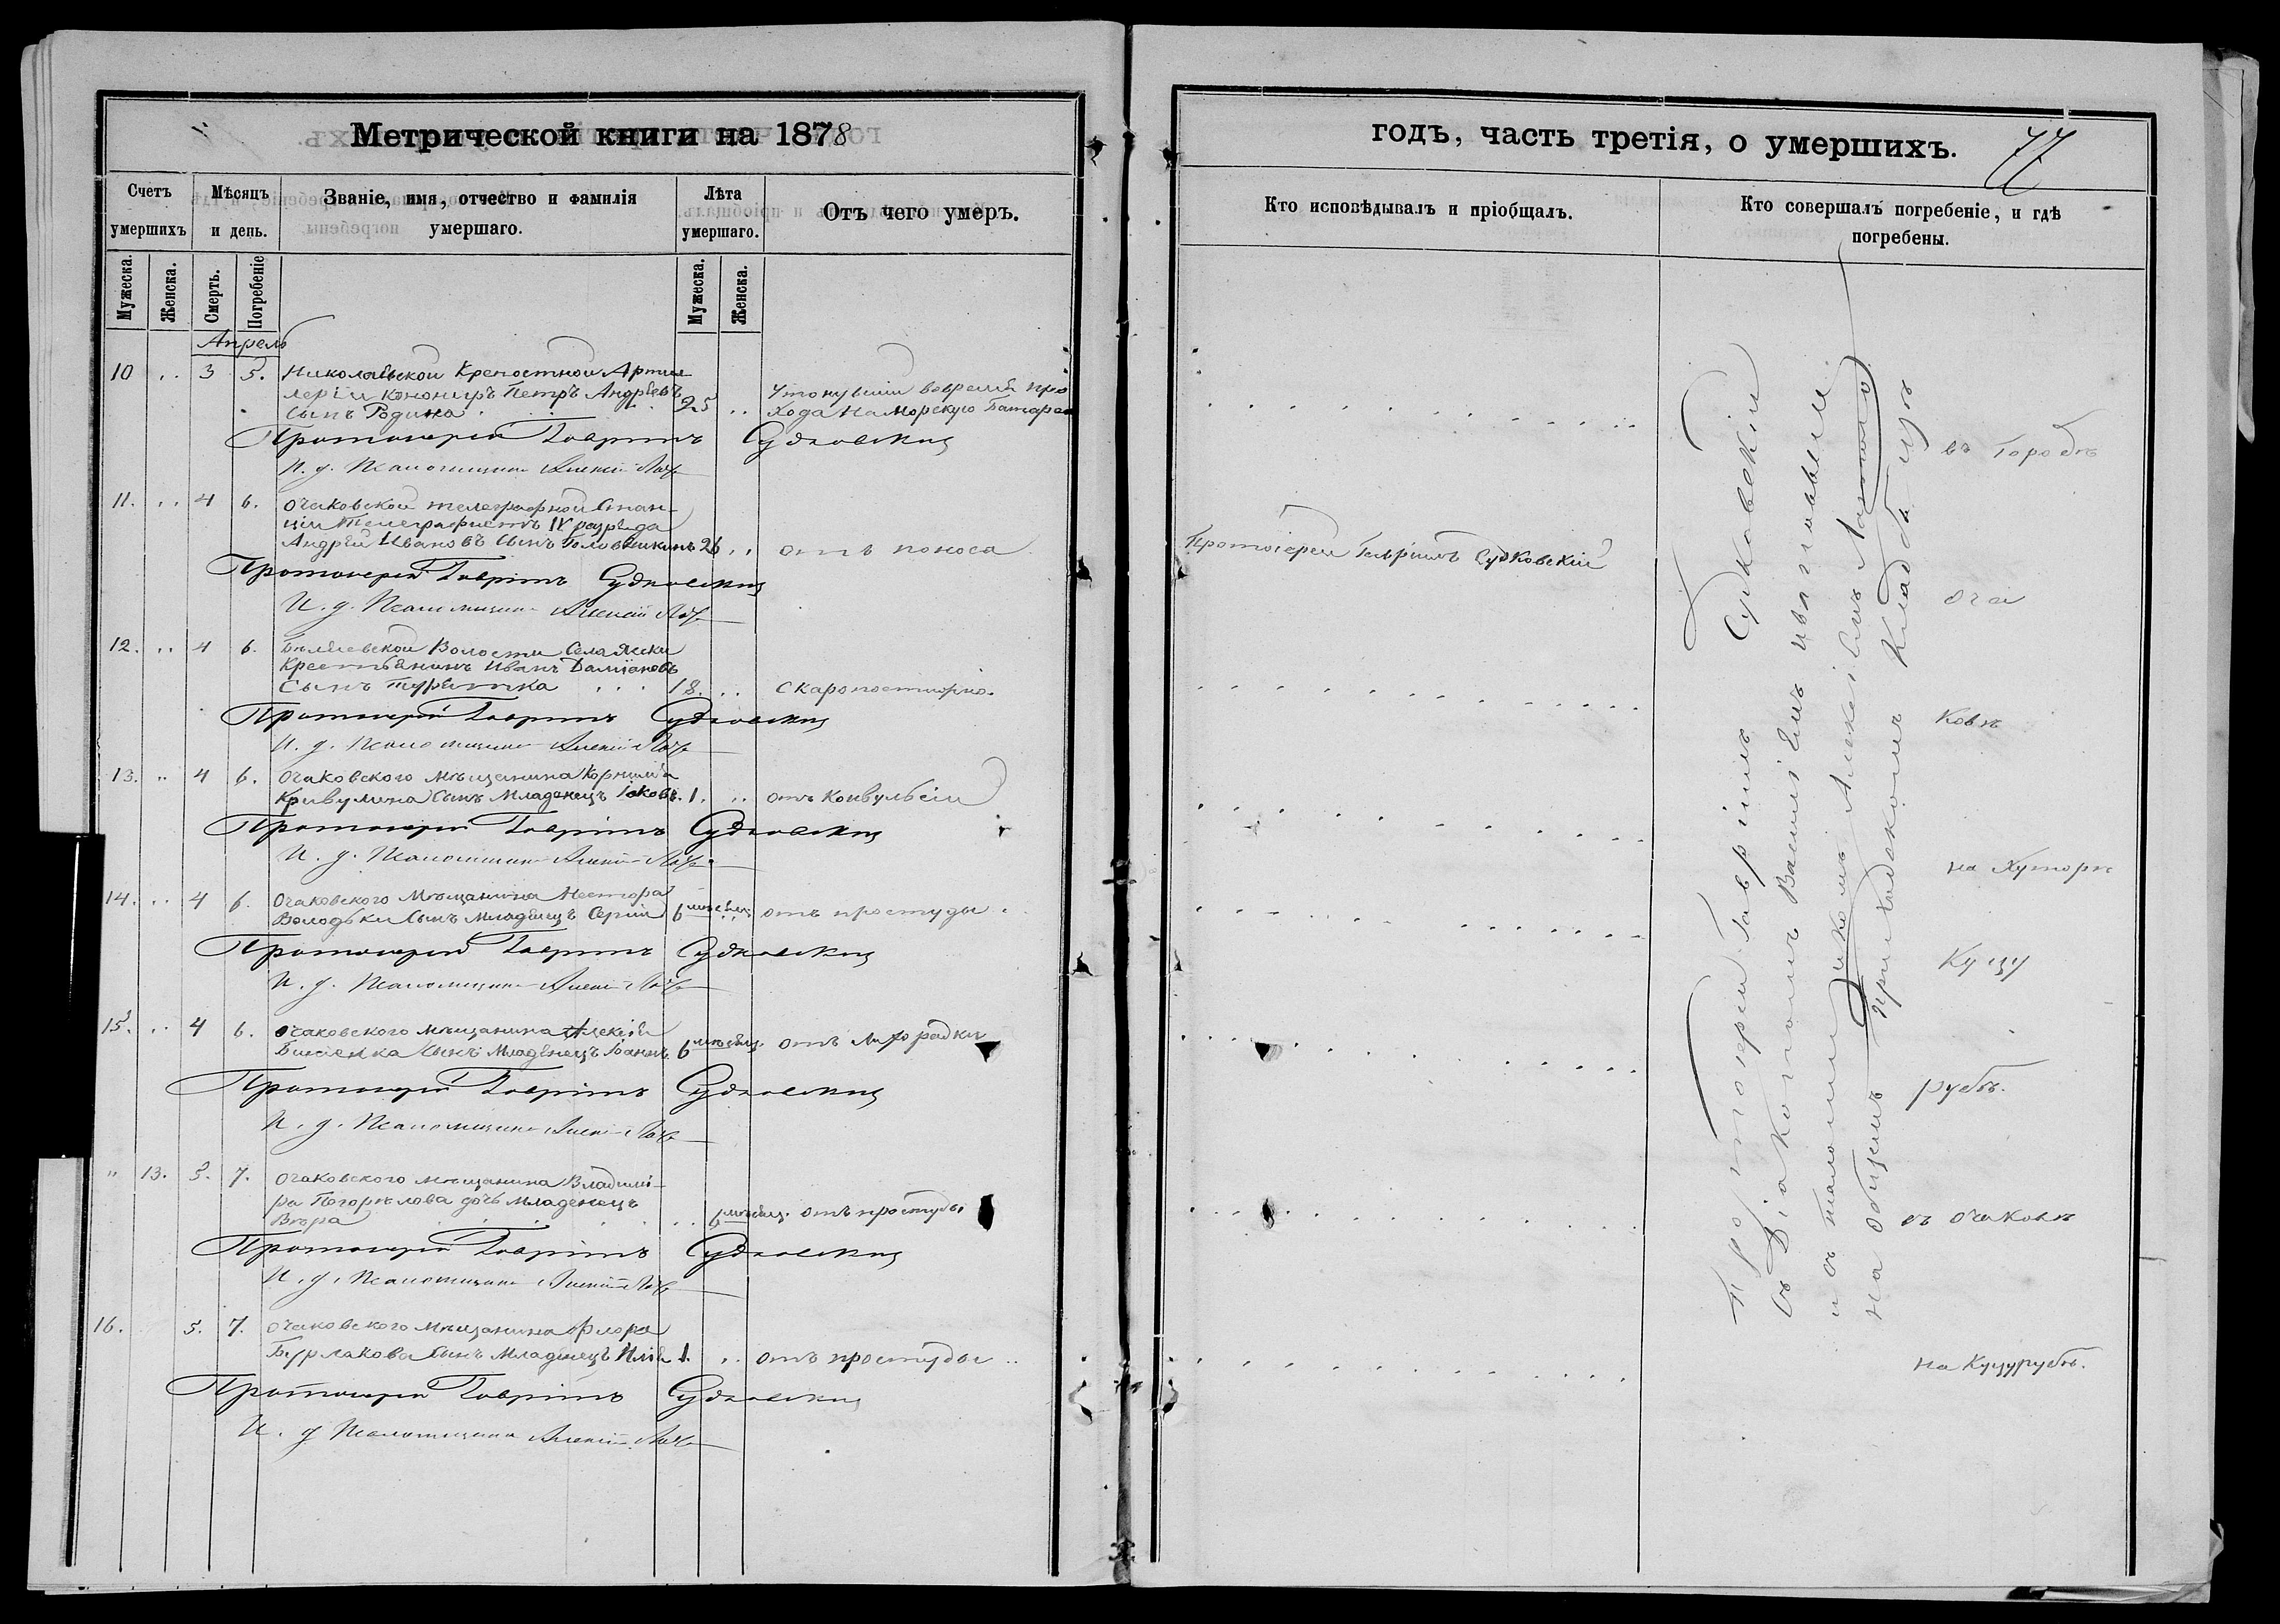 Метрической книги на 1878
годъ, часть третія, о умершихъ.
77
Счетъ умершихъ
Мѣсяцъ и день.
Званіе, имя, отчество и фамилія умершаго.
Лѣта умершаго.
Отъ чего умеръ.
Кто исповѣдывалъ и пріобщалъ.
Кто совершалъ погребеніе, и гдѣ погребены.
Мужеска.
Женска.
Смерть.
Погребеніе
Мужеска.
Женска.
Апрель
10 " 3 5. Николаевской Крепостной Артил
леріи канониръ Петръ Андреевъ
Сынъ Родина 25 "
Утонувшій вовремя про
хода на Морскую Батарею
Протоіерей Гавріилъ Судковскій
И. д. Псаломщика Алексій
въ Городѣ
11. " 4 6. Очаковской телеграфной Стан-
ціи Телеграфистъ IV разряда
Андрей Ивановъ Сынъ Головшкинъ 26 " отъ поноса
Протоіерей Гавріилъ Судковскій
Протоіерей Гавріилъ Судковскій
И. д. Псаломщика Алексій
Оча
12. " 4 6. Беляевской Волости Села Яски
Крестьянинъ Иванъ Даміановъ
Сынъ 18. " Скаропостижно.
Протоіерей Гавріилъ Судковскій
И. д. Псаломщика Алексій
ковѣ
13. " 4 6. Очаковского мѣщанина Корнилія
Кривулина Сынъ Младенецъ Іаковъ. 1. " отъ Конвульсіи
Протоіерей Гавріилъ Судковскій
И. д. Псаломщика Алексій
на Хуторѣ
14. " 4 6. Очаковского Мѣщанина Нестора
Володьки Сынъ Младенецъ Сергій 6 мѣсяц. отъ простуды
Протоіерей Гавріилъ Судковскій
И. д. Псаломщика Алексій
Куцу
15. " 4 6. Очаковского мѣщанина Алексія
Сынъ Младенецъ Іоаннъ 6 мѣсяц. отъ Лихорадки
Протоіерей Гавріилъ Судковскій
И. д. Псаломщика Алексій
рубѣ.
" 13. 5. 7. Очаковского мѣщанина Владимі-
ра Погорѣлова дочь младенецъ
Вѣра 6 мѣсяц. отъ простуды
Протоіерей Гавріилъ Судковскій
И. д. Псаломщика Алексій
въ Очаковѣ
16. 5. 7. Очаковского мѣщанина Флора
Бурлакова Сынъ Младенецъ Илія 1. " отъ простуды
Протоіерей Гавріилъ Судковскій
И. д. Псаломщика Алексій
на Куцурубѣ.
Протоіерей Гавріилъ Судковскій
съ Діакономъ Василіемъ
и Псаломщикомъ Алексіемъ
на общемъ приходскомъ Кладбищѣ